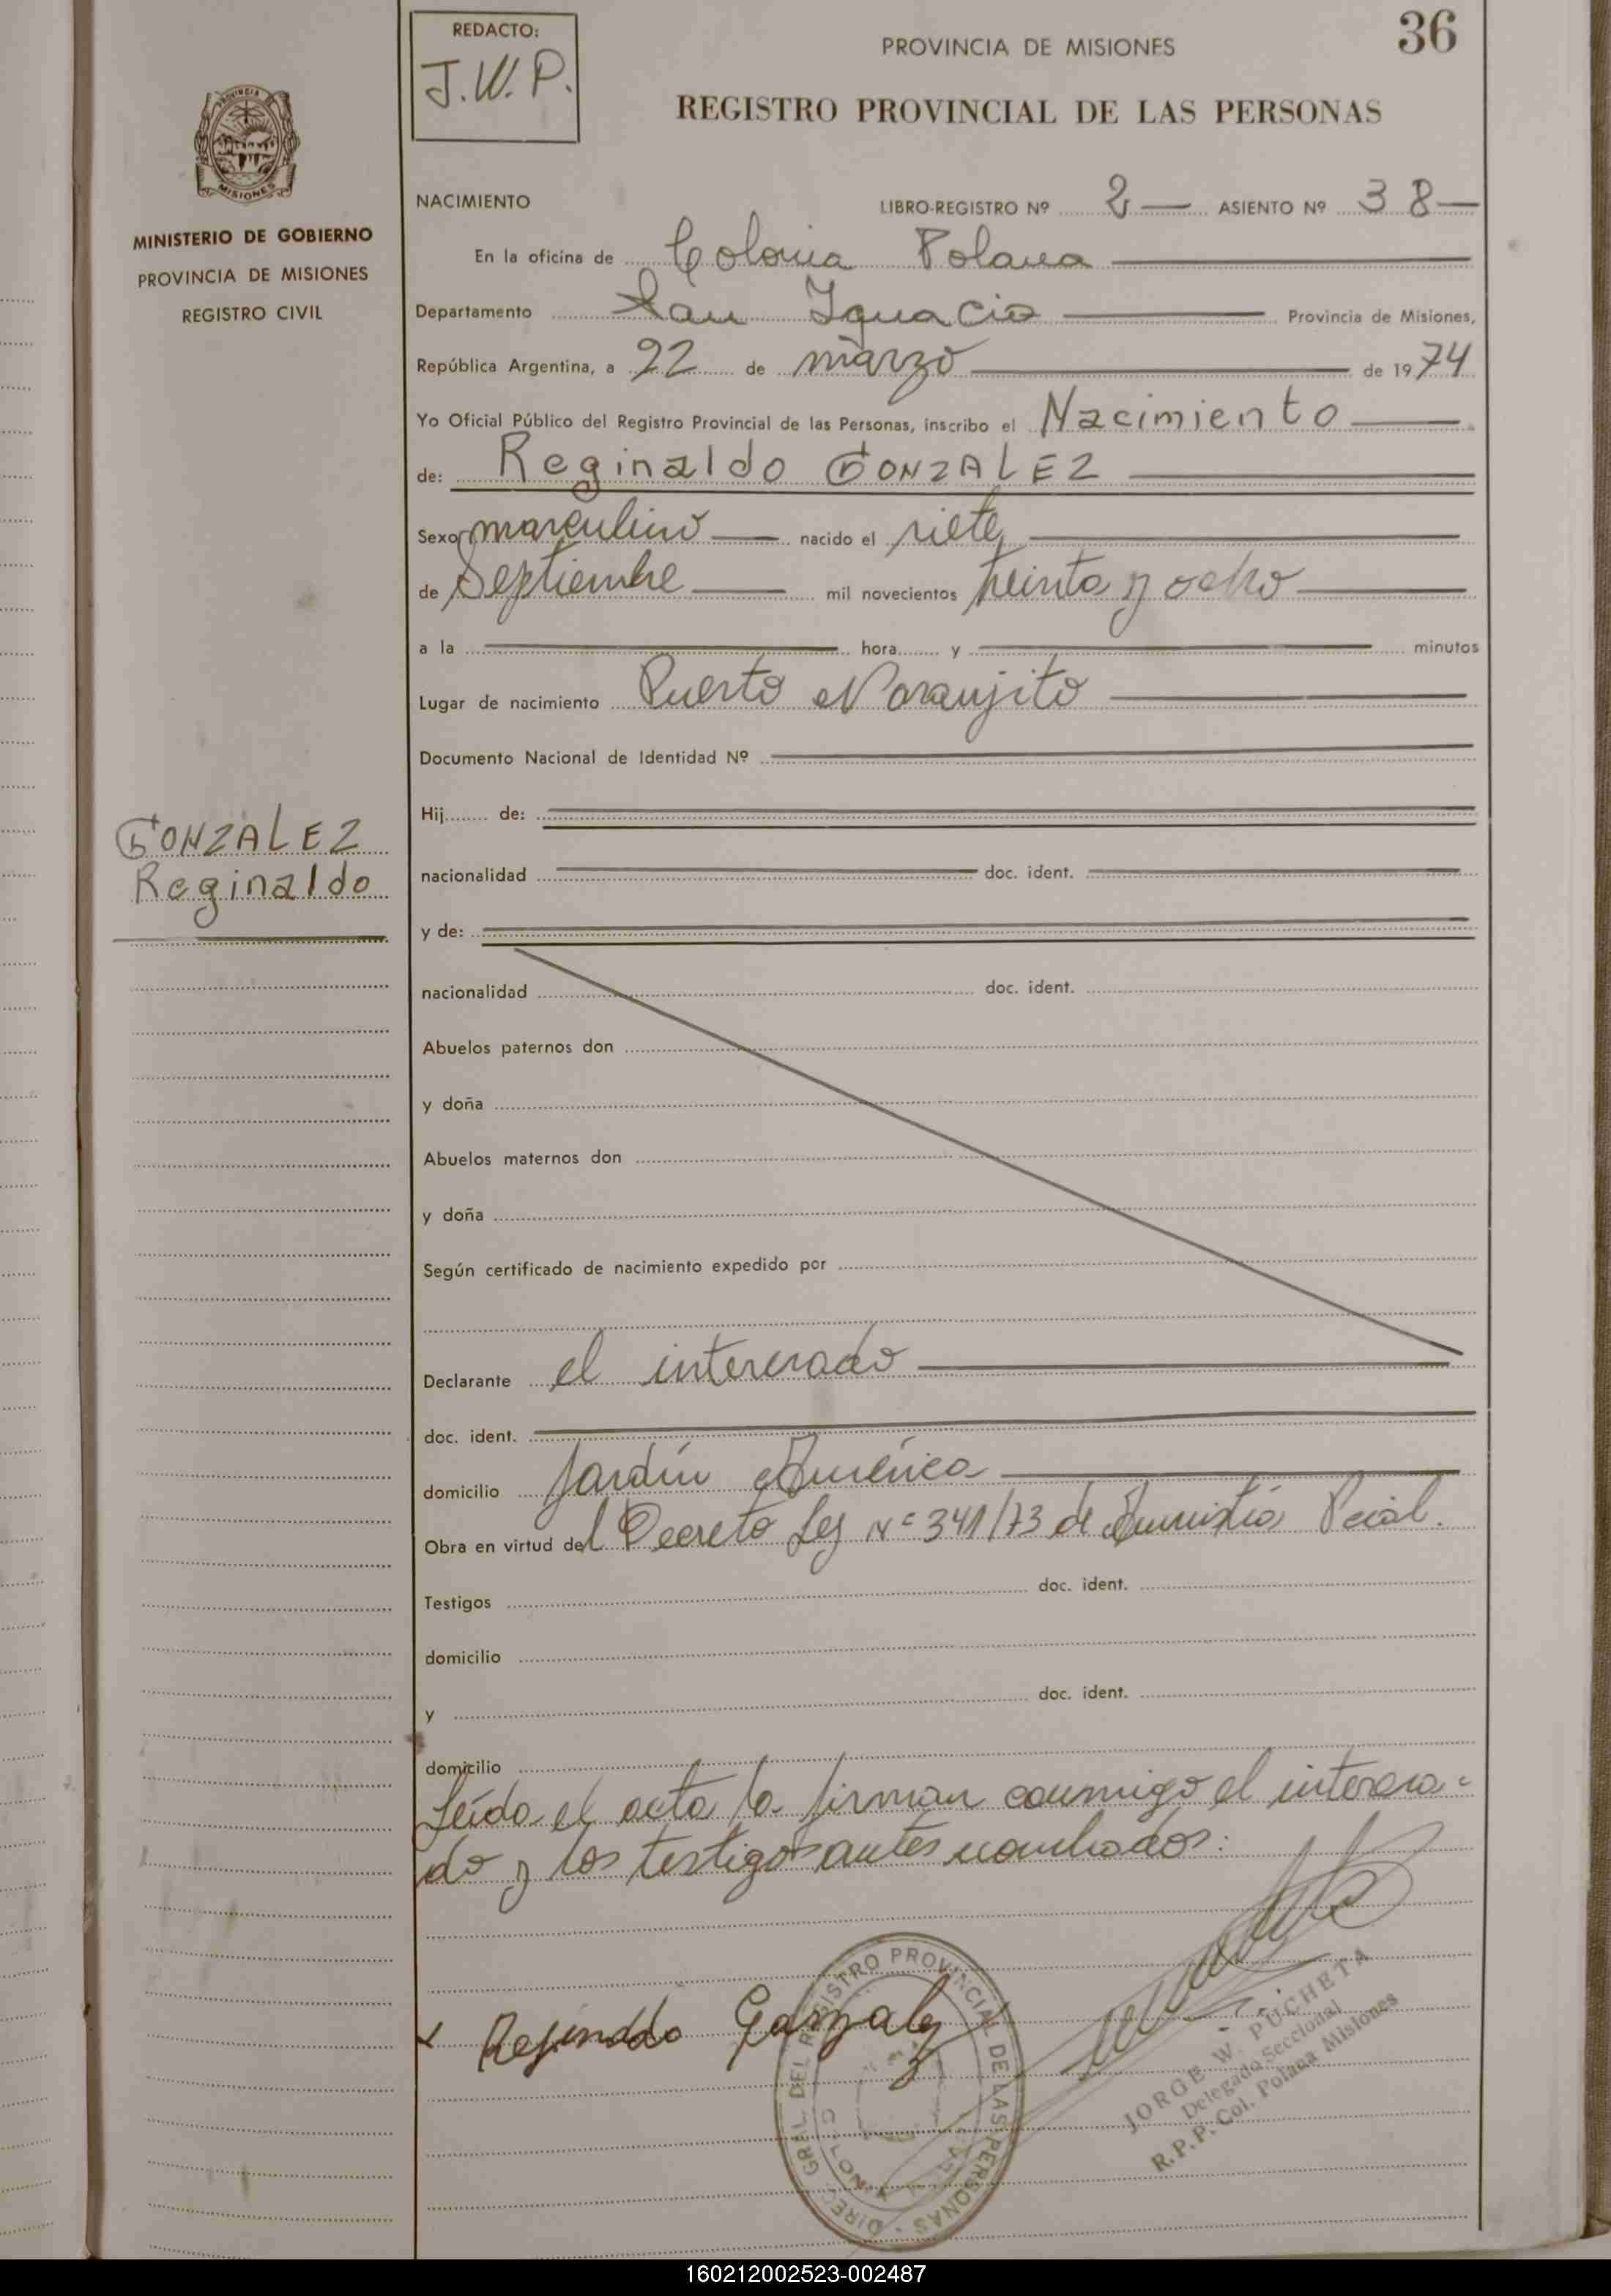 36
REDACTO:
J.W.P.
PROVINCIA DE MISIONES
REGISTRO PROVINCIAL DE LAS PERSONAS
PROVINCIA DE
MISIONES
MINISTERIO DE GOBIERNO
PROVINCIA DE MISIONES
REGISTRO CIVIL
NACIMIENTO LIBRO-REGISTRO Nº 2 — ASIENTO Nº 38 —
En la oficina de Colonia Polana
Departamento San Ignacio Provincia de Misiones,
República Argentina, a 22 de marzo de 1974
Yo Oficial Público del Registro Provincial de las Personas, inscribo el Nacimiento
de: Reginaldo GONZALEZ
Sexo masculino nacido el siete
de Septiembre mil novecientos treinta y ocho
a la hora y minutos
Lugar de nacimiento Puerto Naranjito
Documento Nacional de Identidad Nº
Hij de:
GONZALEZ
Reginaldo
nacionalidad doc. ident.
y de:
nacionalidad doc. ident.
Abuelos paternos don
y doña
Abuelos maternos don
y doña
Según certificado de nacimiento expedido por
Declarante el interesado
doc. ident.
domicilio Jardín América
Obra en virtud del Decreto Ley Nº 341/73 de Amnistía Pcial.
Testigos doc. ident.
domicilio
y doc. ident.
domicilio
Leída el acta la firman conmigo el interesa-
do y los testigos antes nombrados:
x Rejinddo Gonzalez
DIREC. GRAL. DEL REGISTRO PROVINCIAL DE LAS PERSONAS
JORGE W. PUCHETA
Delegado Seccional
R.P.P. Col. Polana Misiones
160212002523-002487